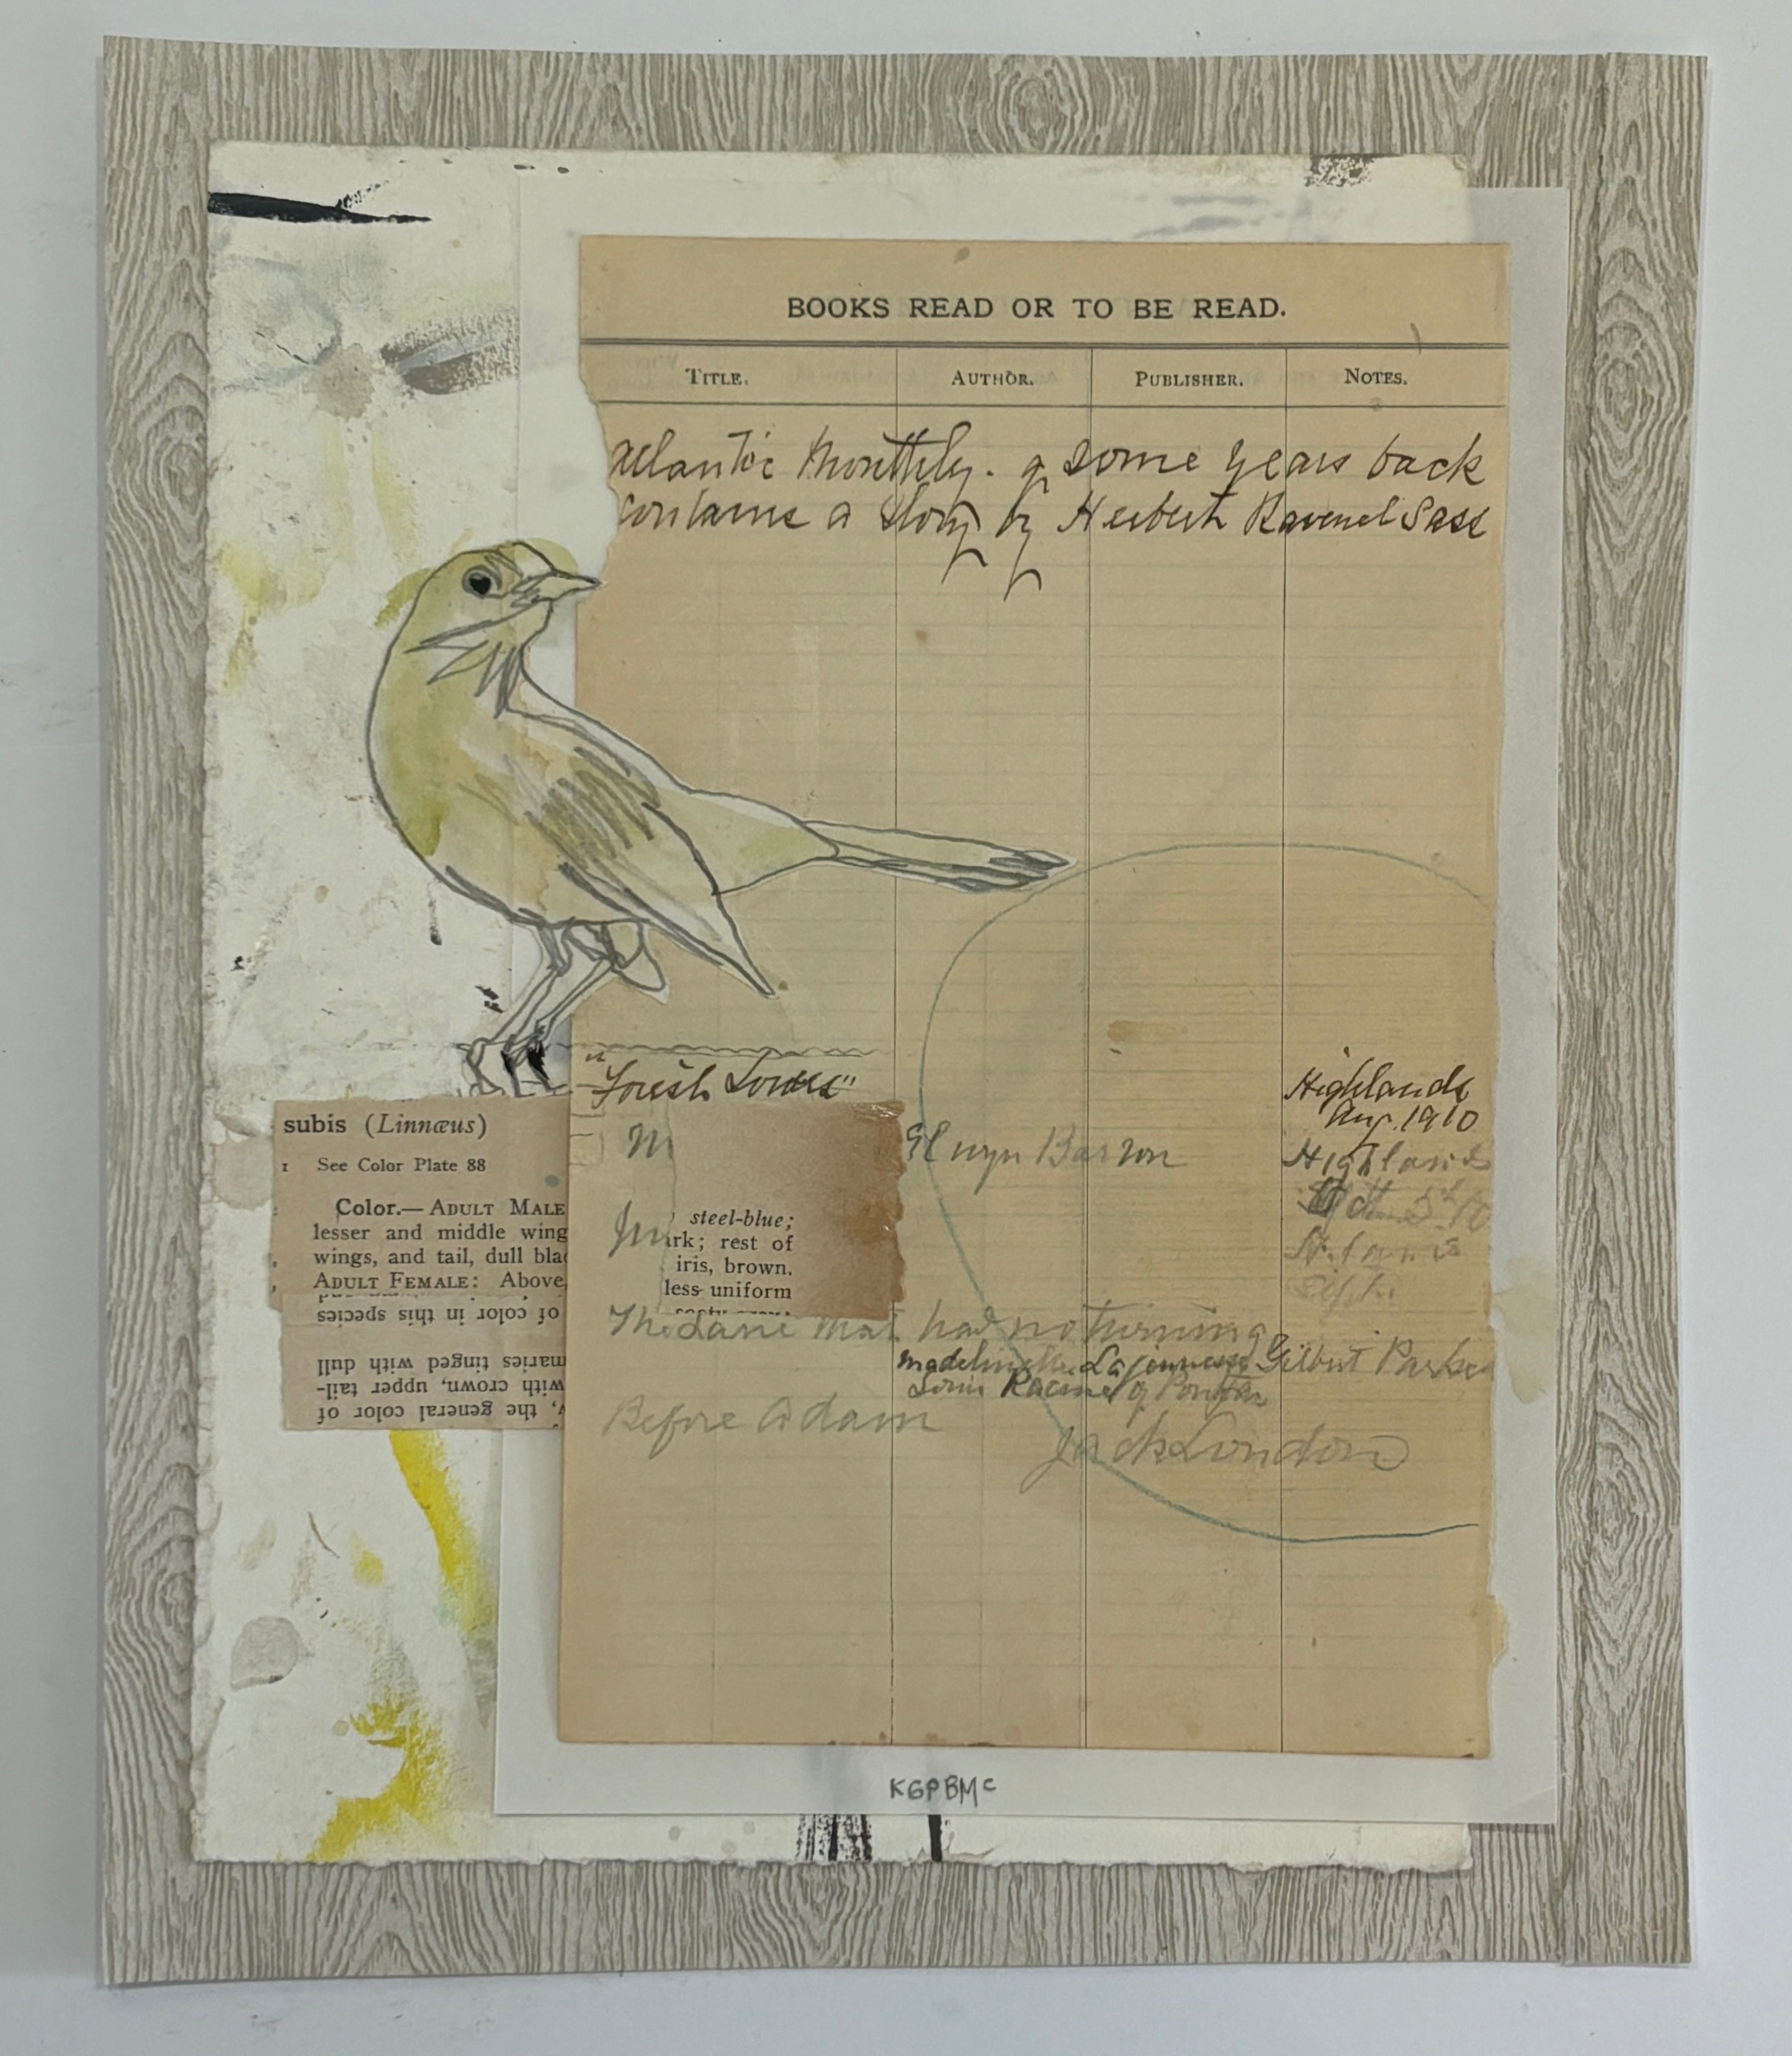 BOOKS READ OR TO BE READ.
TITLE. AUTHOR. PUBLISHER. NOTES.
Atlantic Monthly. of some years back
contains a story by Herbert Ravenel Sass
"Forest
Highlands
Aug. 1910
M
Elwyn Barron
Highlands
Sept.
subis (Linnæus)
1 See Color Plate 88
Color.— ADULT MALE
lesser and middle wing
wings, and tail, dull bla
ADULT FEMALE: Above,
of color in this species
maries tinged with dull
with crown, upper tail-
, the general color of
steel-blue;
rk; rest of
iris, brown.
less uniform
The Lane that had no turning
Gilbert Parker
Louis Racine of Pontiac
Before Adam
Jack London
KGPBMc